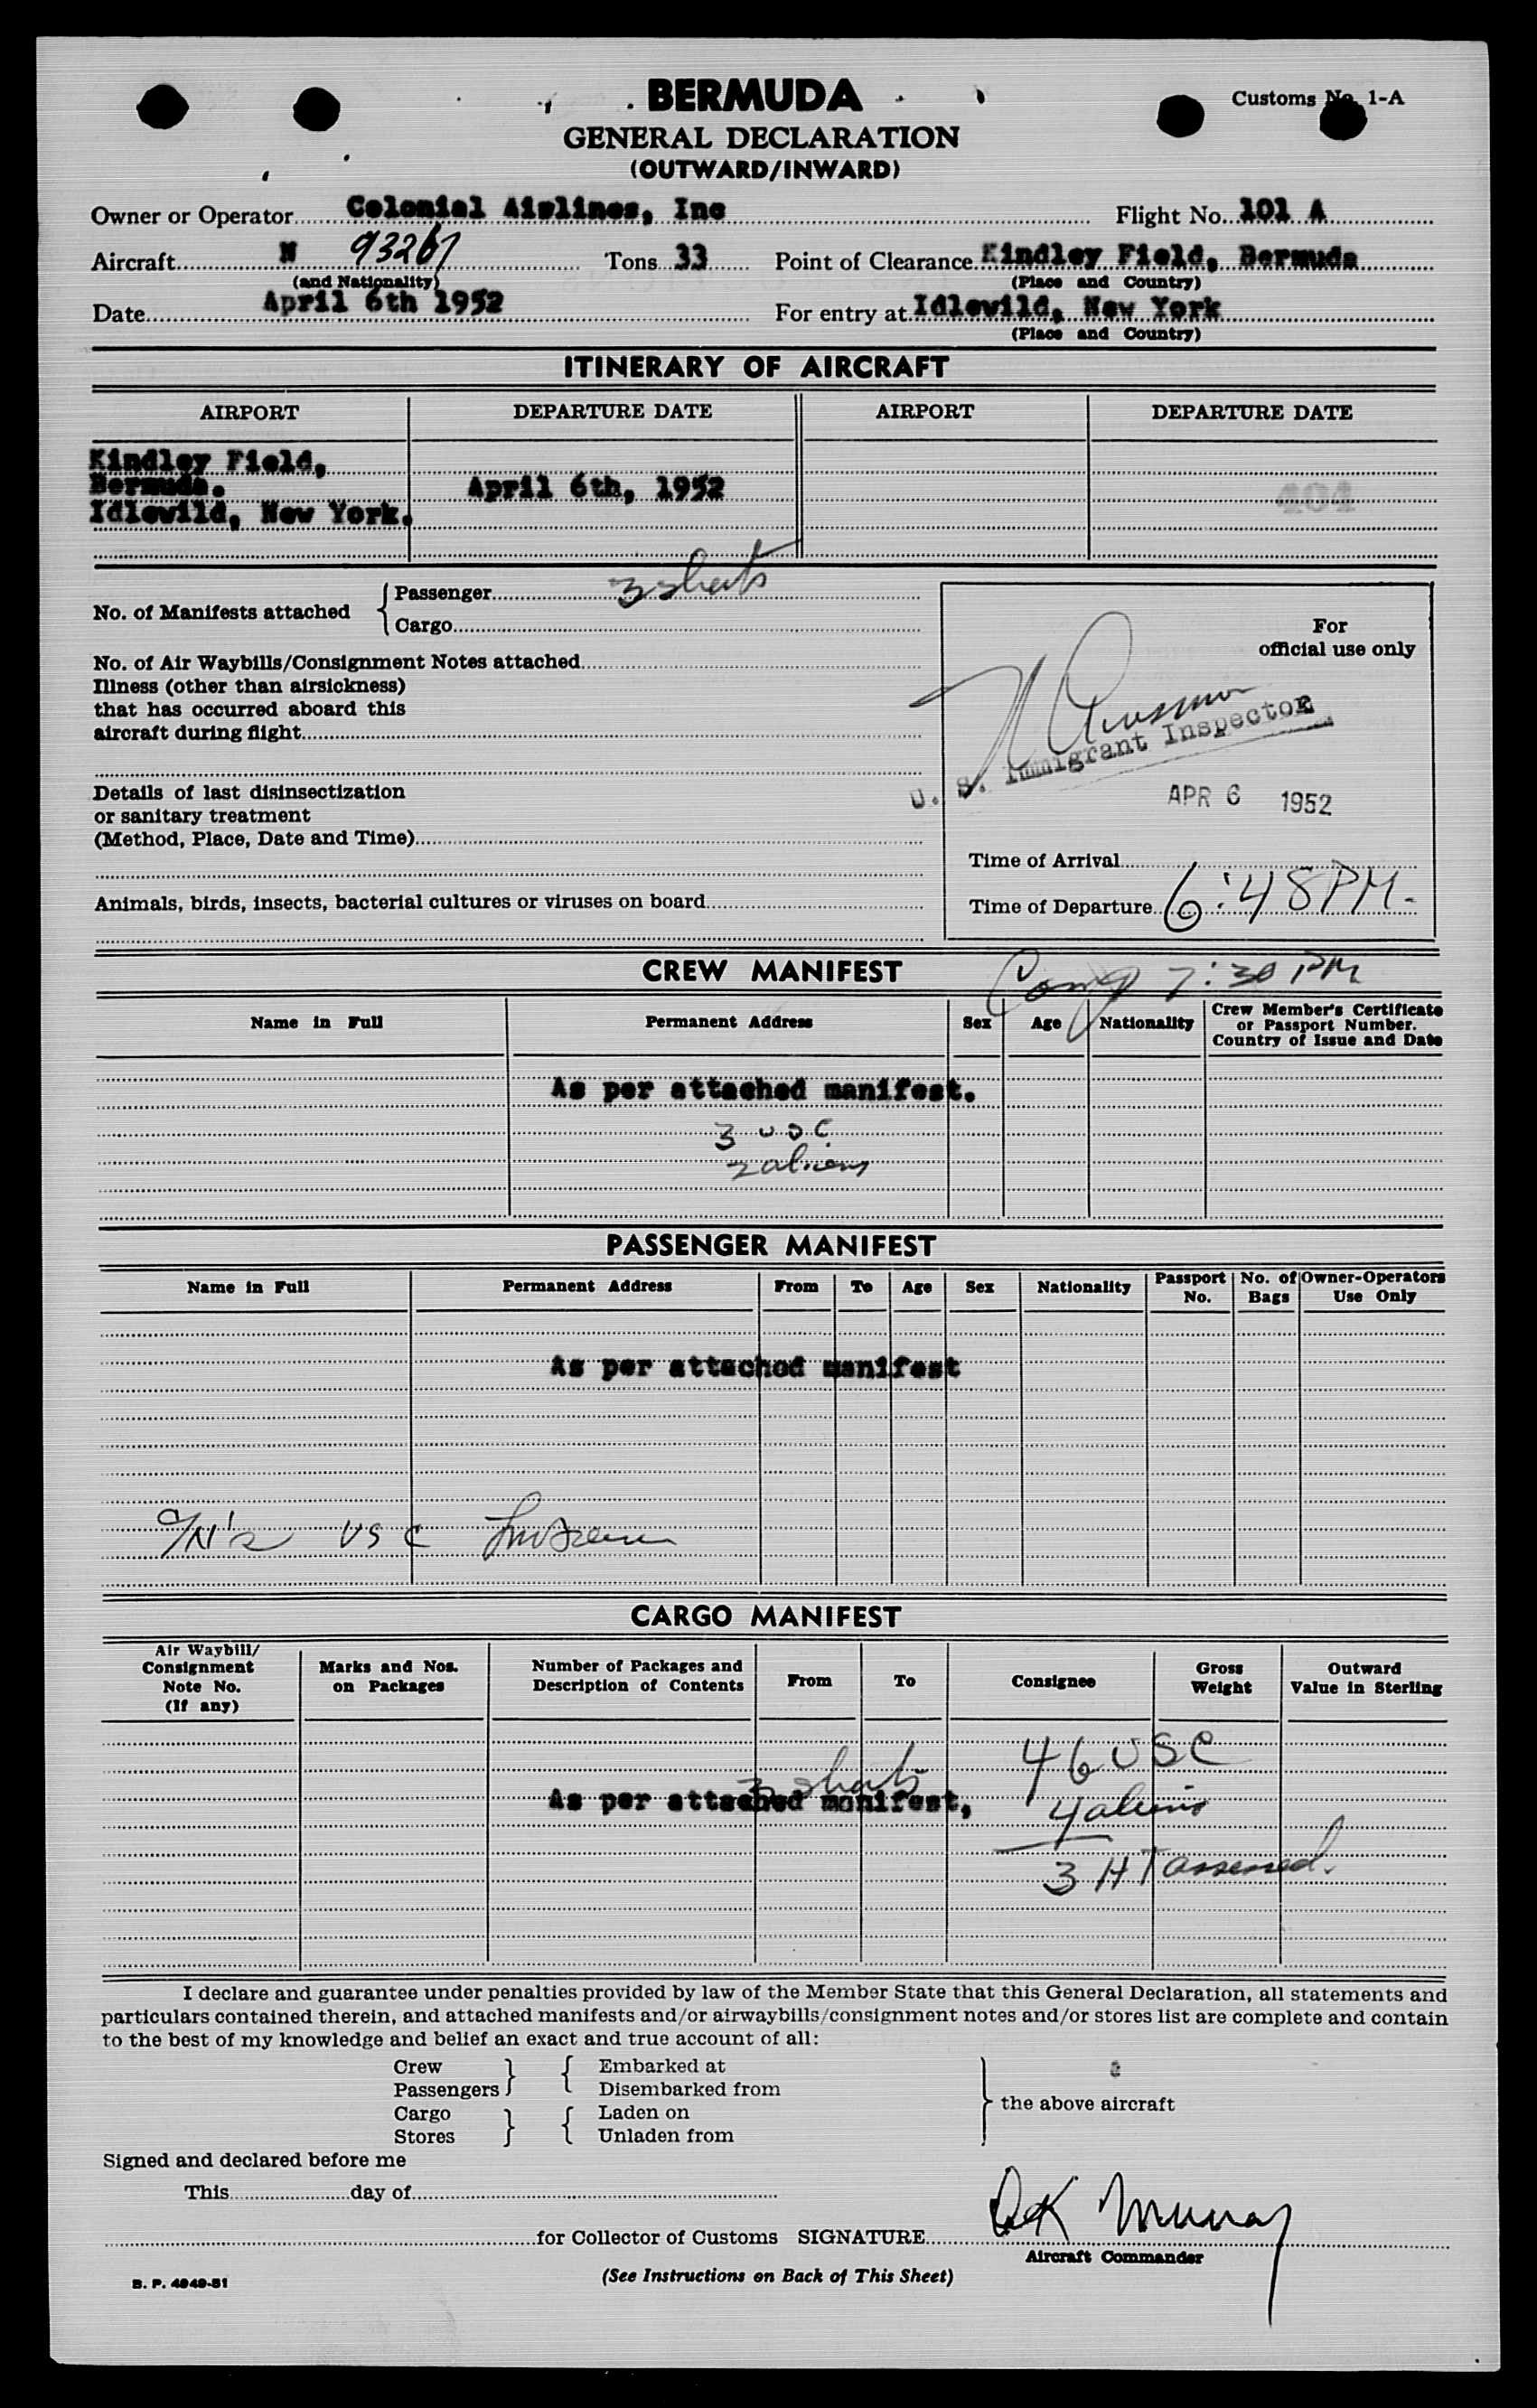 BERMUDA
Customs No. 1-A
GENERAL DECLARATION
(OUTWARD/INWARD)
Owner or Operator Colonial Airlines, Inc Flight No. 101 A
Aircraft N 93267 Tons 33 Point of Clearance Kindley Field, Bermuda
(and Nationality) (Place and Country)
Date April 6th 1952 For entry at Idlewild, New York
(Place and Country)
ITINERARY OF AIRCRAFT
AIRPORT DEPARTURE DATE AIRPORT DEPARTURE DATE
Kindley Field,
Bermuda.
April 6th, 1952
404
Idlewild, New York.
No. of Manifests attached { Passenger 3 sheets
Cargo
For
official use only
No. of Air Waybills/Consignment Notes attached
Illness (other than airsickness)
that has occurred aboard this
aircraft during flight
U. S. Immigrant Inspector
Details of last disinsectization
or sanitary treatment
(Method, Place, Date and Time)
APR 6 1952
Time of Arrival
Animals, birds, insects, bacterial cultures or viruses on board
Time of Departure 6:48 PM-
CREW MANIFEST
7:30 PM
Name in Full Permanent Address Sex Age Nationality Crew Member's Certificate
or Passport Number.
Country of Issue and Date
As per attached manifest.
3 USC
2 aliens
PASSENGER MANIFEST
Name in Full Permanent Address From To Age Sex Nationality Passport No. No. of Bags Owner-Operators Use Only
As per attached manifest
USC
CARGO MANIFEST
Air Waybill/
Consignment
Note No.
(If any)
Marks and Nos.
on Packages
Number of Packages and
Description of Contents
From To Consignee
Gross
Weight
Outward
Value in Sterling
46 USC
3 sheets
As per attached manifest,
4 aliens
3 HT assessed.
I declare and guarantee under penalties provided by law of the Member State that this General Declaration, all statements and
particulars contained therein, and attached manifests and/or airwaybills/consignment notes and/or stores list are complete and contain
to the best of my knowledge and belief an exact and true account of all:
Crew } { Embarked at
Passengers Disembarked from
} the above aircraft
Cargo } { Laden on
Stores Unladen from
Signed and declared before me
This day of
for Collector of Customs SIGNATURE Murray
Aircraft Commander
B. P. 4949-51
(See Instructions on Back of This Sheet)